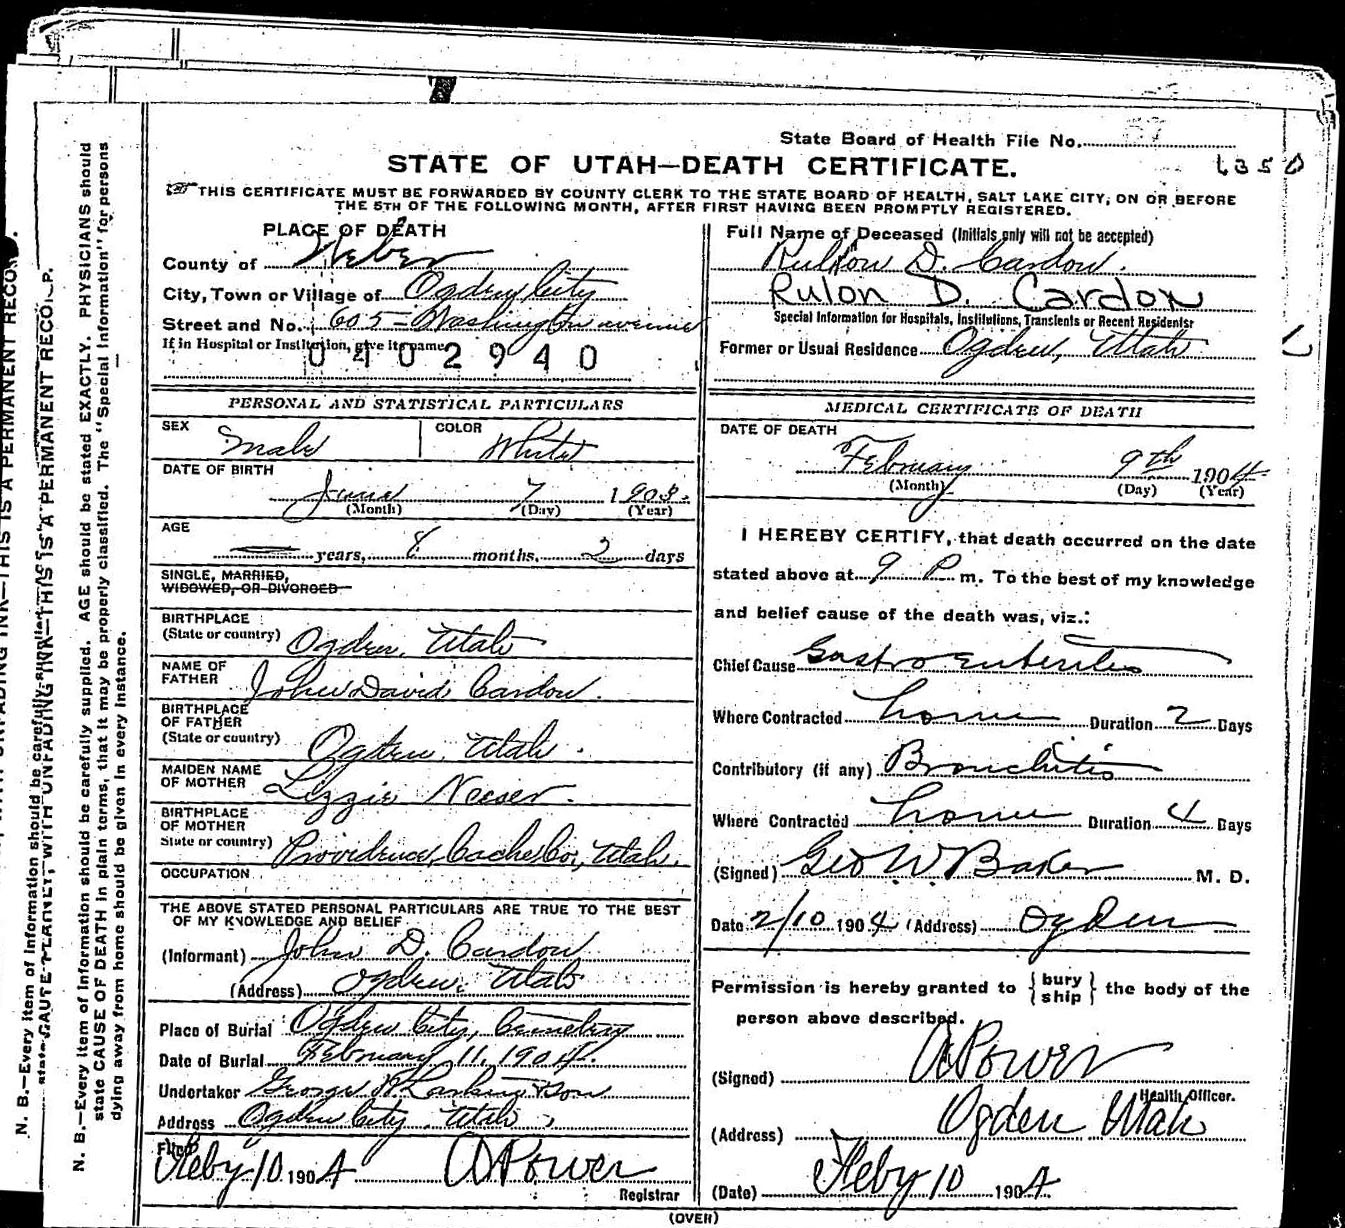 State Board of Health File No. 57
STATE OF UTAH—DEATH CERTIFICATE.
6350
THIS CERTIFICATE MUST BE FORWARDED BY COUNTY CLERK TO THE STATE BOARD OF HEALTH, SALT LAKE CITY, ON OR BEFORE
THE 5TH OF THE FOLLOWING MONTH, AFTER FIRST HAVING BEEN PROMPTLY REGISTERED.
PLACE OF DEATH
County of Weber
City, Town or Village of Ogden City
Street and No. 605 - Washington avenue
If in Hospital or Institution, give its name
0402940
PERSONAL AND STATISTICAL PARTICULARS
SEX Male COLOR White
DATE OF BIRTH
June 7 1903.
(Month) (Day) (Year)
AGE
— years, 8 months, 2 days
SINGLE, MARRIED,
WIDOWED, OR DIVORCED
BIRTHPLACE
(State or country) Ogden, Utah
NAME OF
FATHER John David Cardon.
BIRTHPLACE
OF FATHER
(State or country) Ogden, Utah.
MAIDEN NAME
OF MOTHER Lizzie Neeser.
BIRTHPLACE
OF MOTHER
State or country) Providence, Cache Co, Utah.
OCCUPATION
THE ABOVE STATED PERSONAL PARTICULARS ARE TRUE TO THE BEST
OF MY KNOWLEDGE AND BELIEF
(Informant) John D. Cardon
(Address) Ogden, Utah
Place of Burial Ogden City, Cemetery
Date of Burial February 11, 1904.
Undertaker George W Larkin & Son
Address Ogden City, Utah,
Filed
Feby 10 1904 A Power
Registrar
Full Name of Deceased (Initials only will not be accepted)
Rulon D. Cardon.
Rulon D. Cardon
Special Information for Hospitals, Institutions, Transients or Recent Residents:
Former or Usual Residence Ogden, Utah
MEDICAL CERTIFICATE OF DEATH
DATE OF DEATH
February 9th 1904.
(Month) (Day) (Year)
I HEREBY CERTIFY, that death occurred on the date
stated above at 9 P m. To the best of my knowledge
and belief cause of the death was, viz.:
Chief Cause Gastro Enteritis
Where Contracted home Duration 2 Days
Contributory (if any) Bronchitis
Where Contracted home Duration 4 Days
(Signed) Geo W. Baker M. D.
Date 2/10 1904 (Address) Ogden
Permission is hereby granted to {bury
ship} the body of the
person above described.
(Signed) A Power
Health Officer.
(Address) Ogden Utah
(Date) Feby 10 1904
(OVER)
N. B.—Every item of information should be carefully supplied. AGE should be stated EXACTLY. PHYSICIANS should
state CAUSE OF DEATH in plain terms, that it may be properly classified. The "Special Information" for persons
dying away from home should be given in every instance.